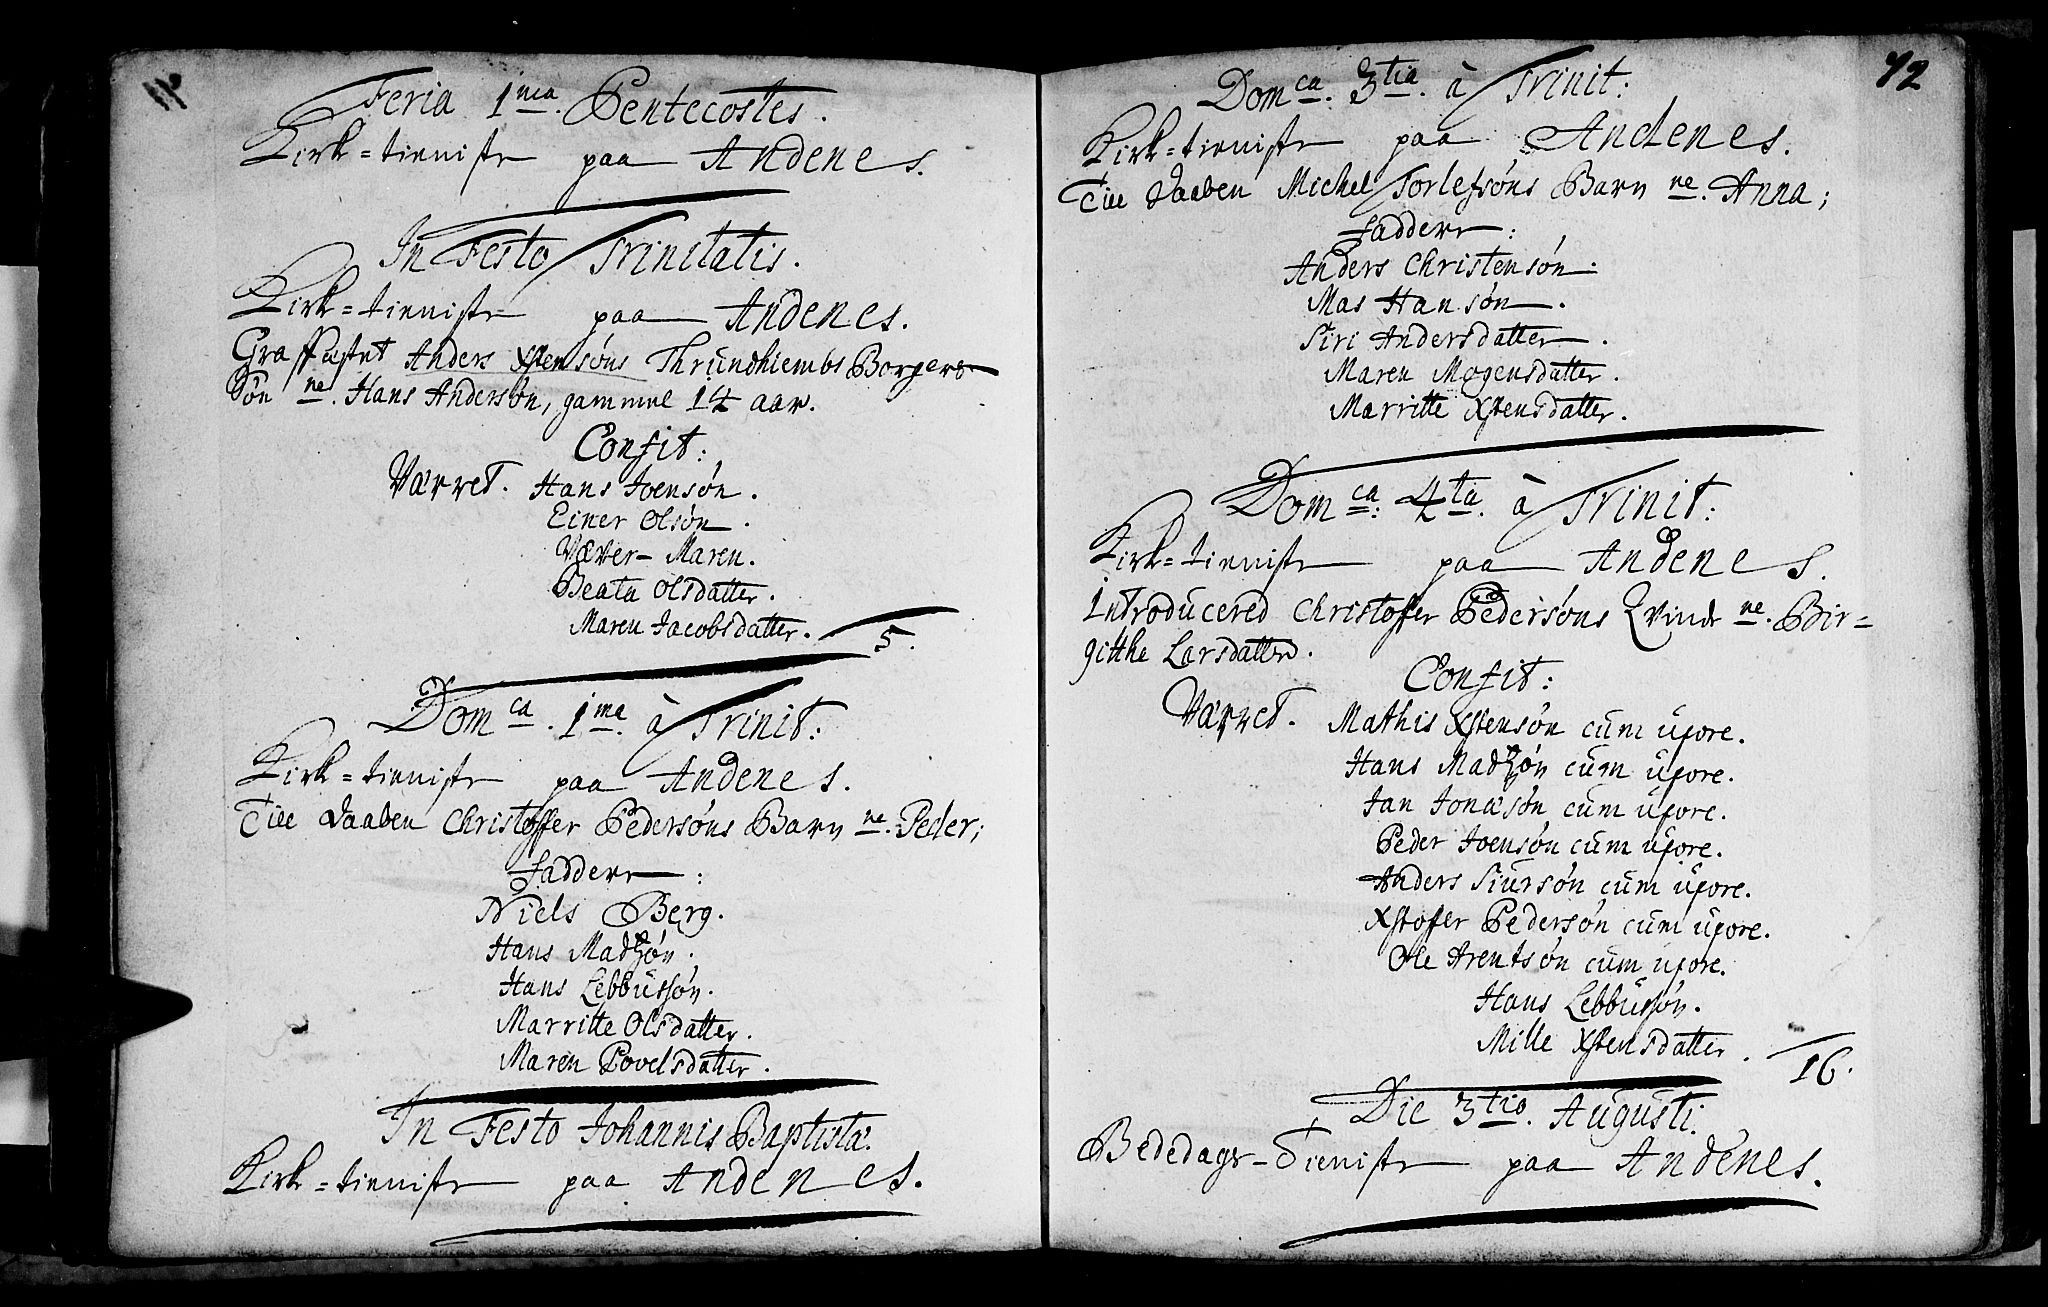 Feria 1ma. Pentecostes.
Kirke=tieniste paa Andenes.
In Festo Trinitatis.
Kirke=tieniste paa Andenes.
Graffæstet Anders Xstensøns Thrundhiembs Borgers
Søn ne. Hans Andersøn, gammel 14 aar.
Confit:
Værret. Hans Joensøn.
Einer Olsøn.
Væver-Maren.
Beata Olsdatter.
Maren Jacobsdatter.
5.
Domca. 1ma. à Trinit:
Kirke=tieniste paa Andenes.
Till Daaben Christoffer Pedersøns Barn ne. Peder;
Faddere:
Niels Berg.
Hans Madtzøn.
Hans Lebbussøn.
Marritte Olsdatter.
Maren Povelsdatter.
In Festo Johannis Baptistæ.
Kirke=tieniste paa Andenes.
42
Domca. 3tia. à Trinit:
Kirke=tieniste paa Andenes.
Till Daaben Michel Torlefsøns Barn ne. Anna;
Faddere:
Anders Christensøn.
Mas Hansøn.
Siri Andersdatter.
Maren Mogensdatter.
Marritte Xstensdatter.
Domca: 4ta. à Trinit:
Kirke=tieniste paa Andenes.
Introducered Christoffer Pedersøns Qvinde ne. Bir=
githe Larsdatter.
Confit:
Værret. Mathis Xstensøn cum uxore.
Hans Madtzøn cum uxore.
Jan Jonæsøn cum uxore.
Peder Joensøn cum uxore.
Anders Siursøn cum uxore.
Xstoffer Pedersøn cum uxore.
Ole Arentsøn cum uxore.
Hans Lebbussøn.
Mille Xstensdatter.
16.
Die 3tio. Augusti.
Bededags-Tieniste paa Andenes.